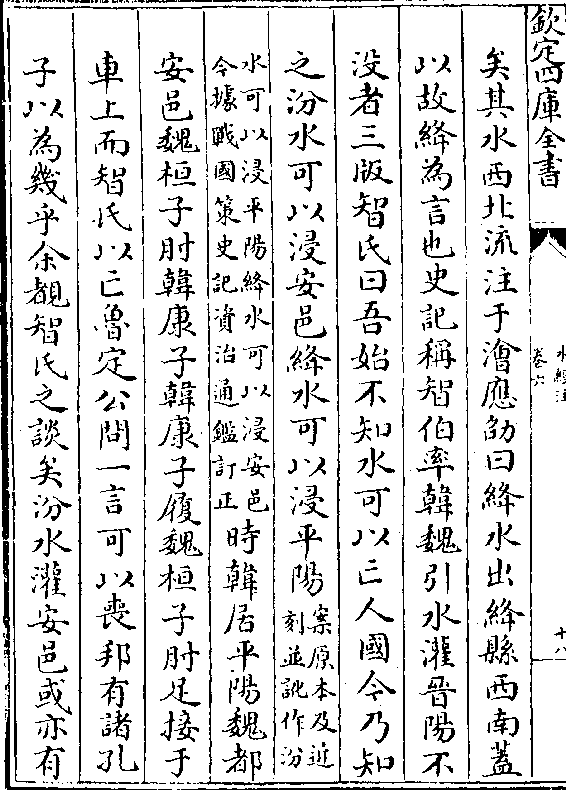 欽定四庫全書
水經注
卷六
十八
矣其水西北流注于澮應劭曰絳水出絳縣西南蓋
以故絳為言也史記稱智伯率韓魏引水灌晉陽不
没者三版智氏曰吾始不知水可以亡人國今乃知
之汾水可以浸安邑絳水可以浸平陽案原本及近
刻並訛作汾
水可以浸平陽絳水可以浸安邑
今據戰國策史記資治通鑑訂正時韓居平陽魏都
安邑魏桓子肘韓康子韓康子履魏桓子肘足接于
車上而智氏以亡魯定公問一言可以喪邦有諸孔
子以為幾乎余覩智氏之談矣汾水灌安邑或亦有